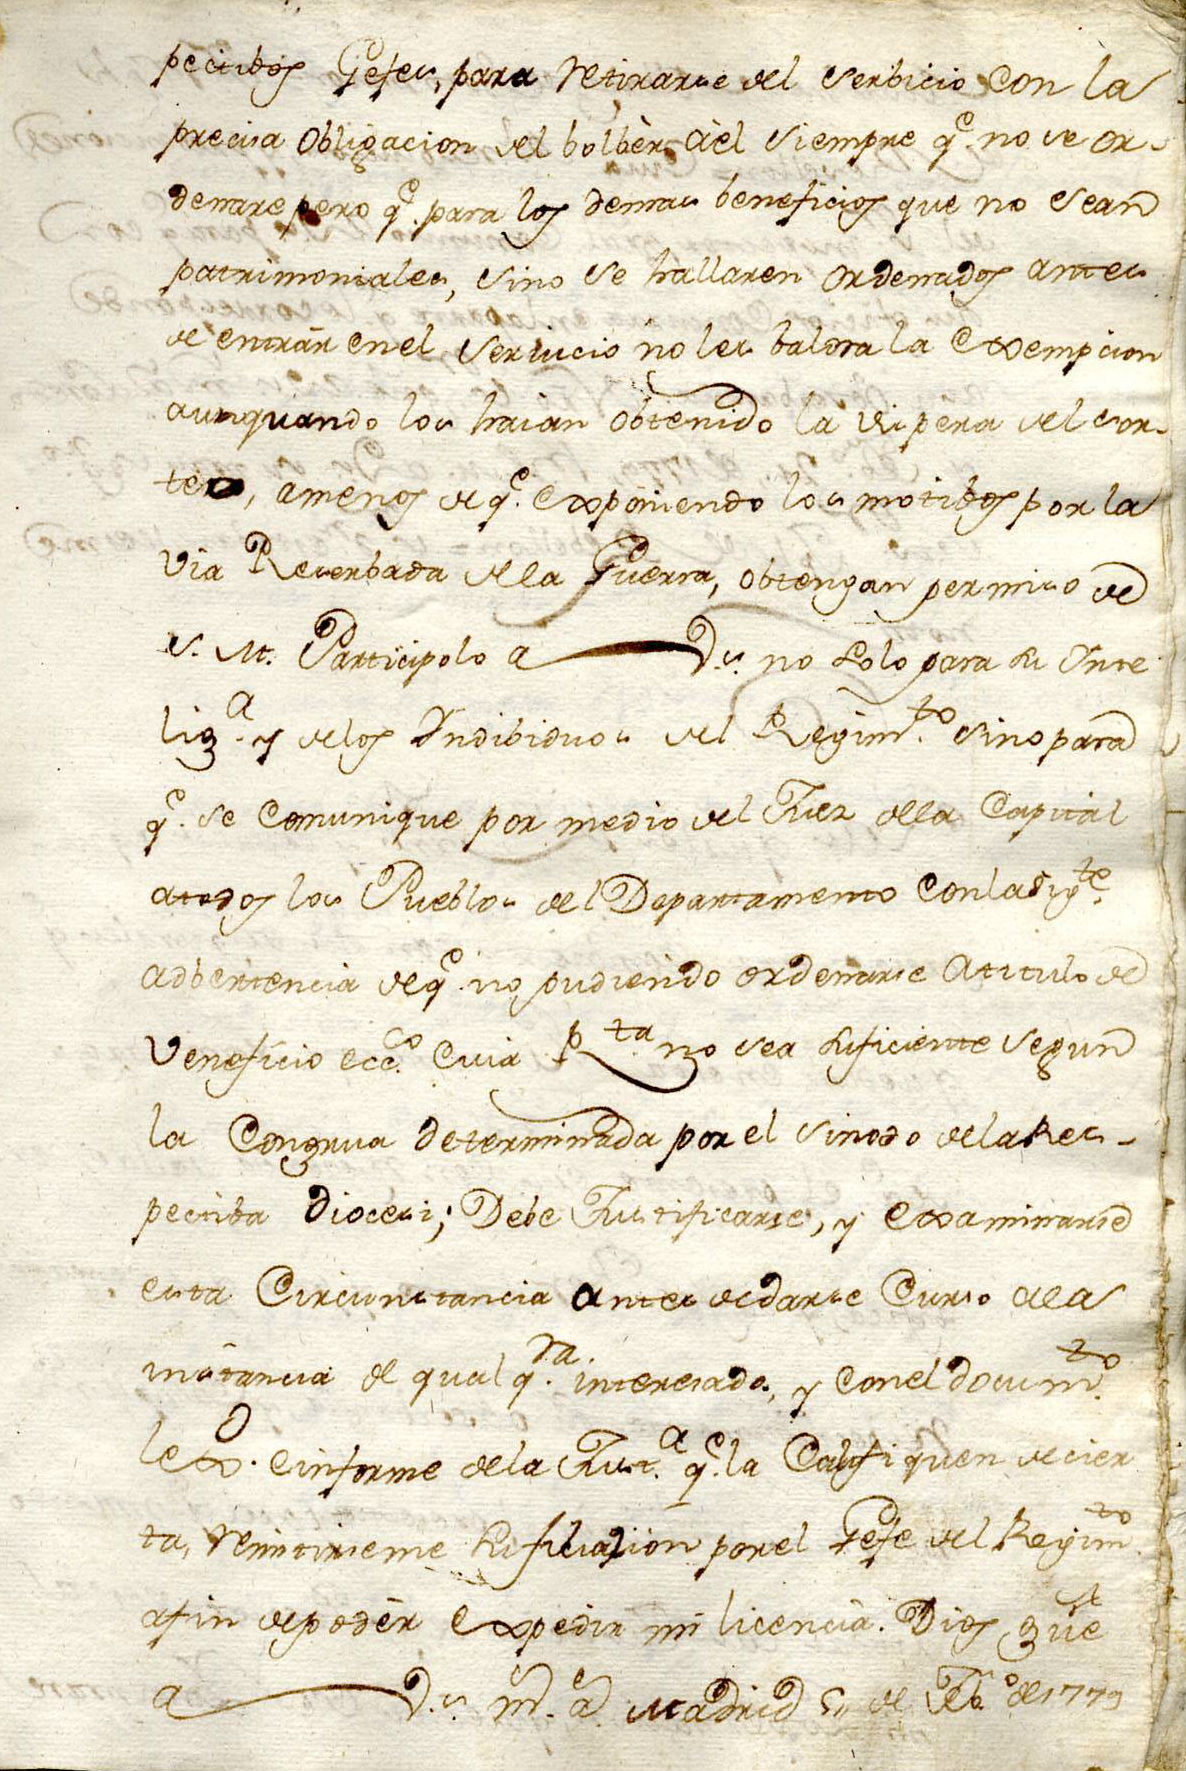 pectibos Gefes, para retirarse del serbicio con la
precisa obligacion del bolbèr àèl siempre q.e no se or-
denare pero q.e para los demas beneficios que no sean
patrimoniales, sino se hallaren ordenados antes
de entràr en el servicio no les baldra la exempcion
aunquando los haian obtenido la vispera del sor-
teo, amenos de q.e exponiendo los motibos por la
via Reserbada dela Guerra, obtengan permiso de
S. M. Participolo a V.s. no solo para su Inte
lig.a y delos Indibiduos del Regim.to sino para
q.e se comunique por medio del Juez dela Capital
atodos los Pueblos del Departamento con la sig.te
adbertencia de q.e no pudiendo ordenarse atitulo de
Veneficio ecc.co cuia R.ta no sea suficiente segun
la Congrua determinada por el sinodo dela Res-
pectiba Diocesi; Debe Justificarse, y examinarse
esta Circunstancia antes de darse Curso ala
instancia de qualq.ra interesado, y con el docum.to
lex.o e informe dela Just.a q.e la Califiquen de cier
ta, remitirseme su filiacion por el Gefe del Regim.to
afin de poder expedir mi licencia. Dios gue
a V.s. m.s a.s Madrid 5,, de Feb.o de 1779